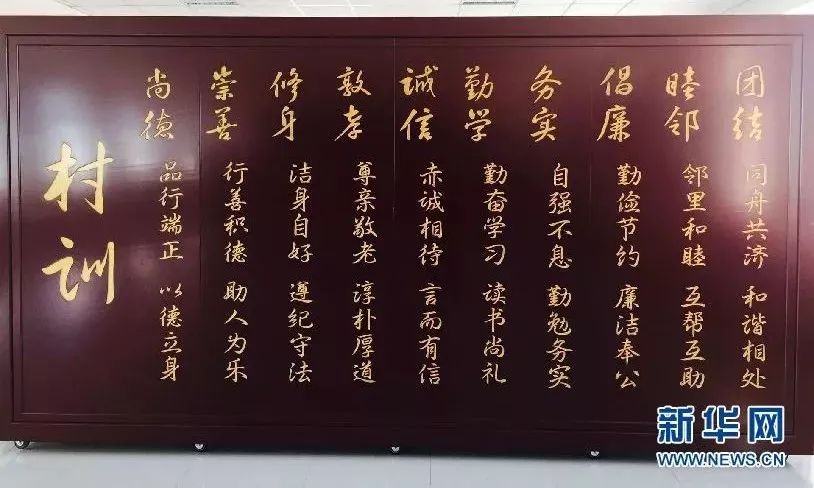 村训
尚德 品行端正 以德立身
崇善 行善积德 助人为乐
修身 洁身自好 遵纪守法
敦孝 尊亲敬老 淳朴厚道
诚信 赤诚相待 言而有信
勤学 勤奋学习 读书尚礼
务实 自强不息 勤勉务实
倡廉 勤俭节约 廉洁奉公
睦邻 邻里和睦 互帮互助
团结 同舟共济 和谐相处
新华网
WWW.NEWS.CN